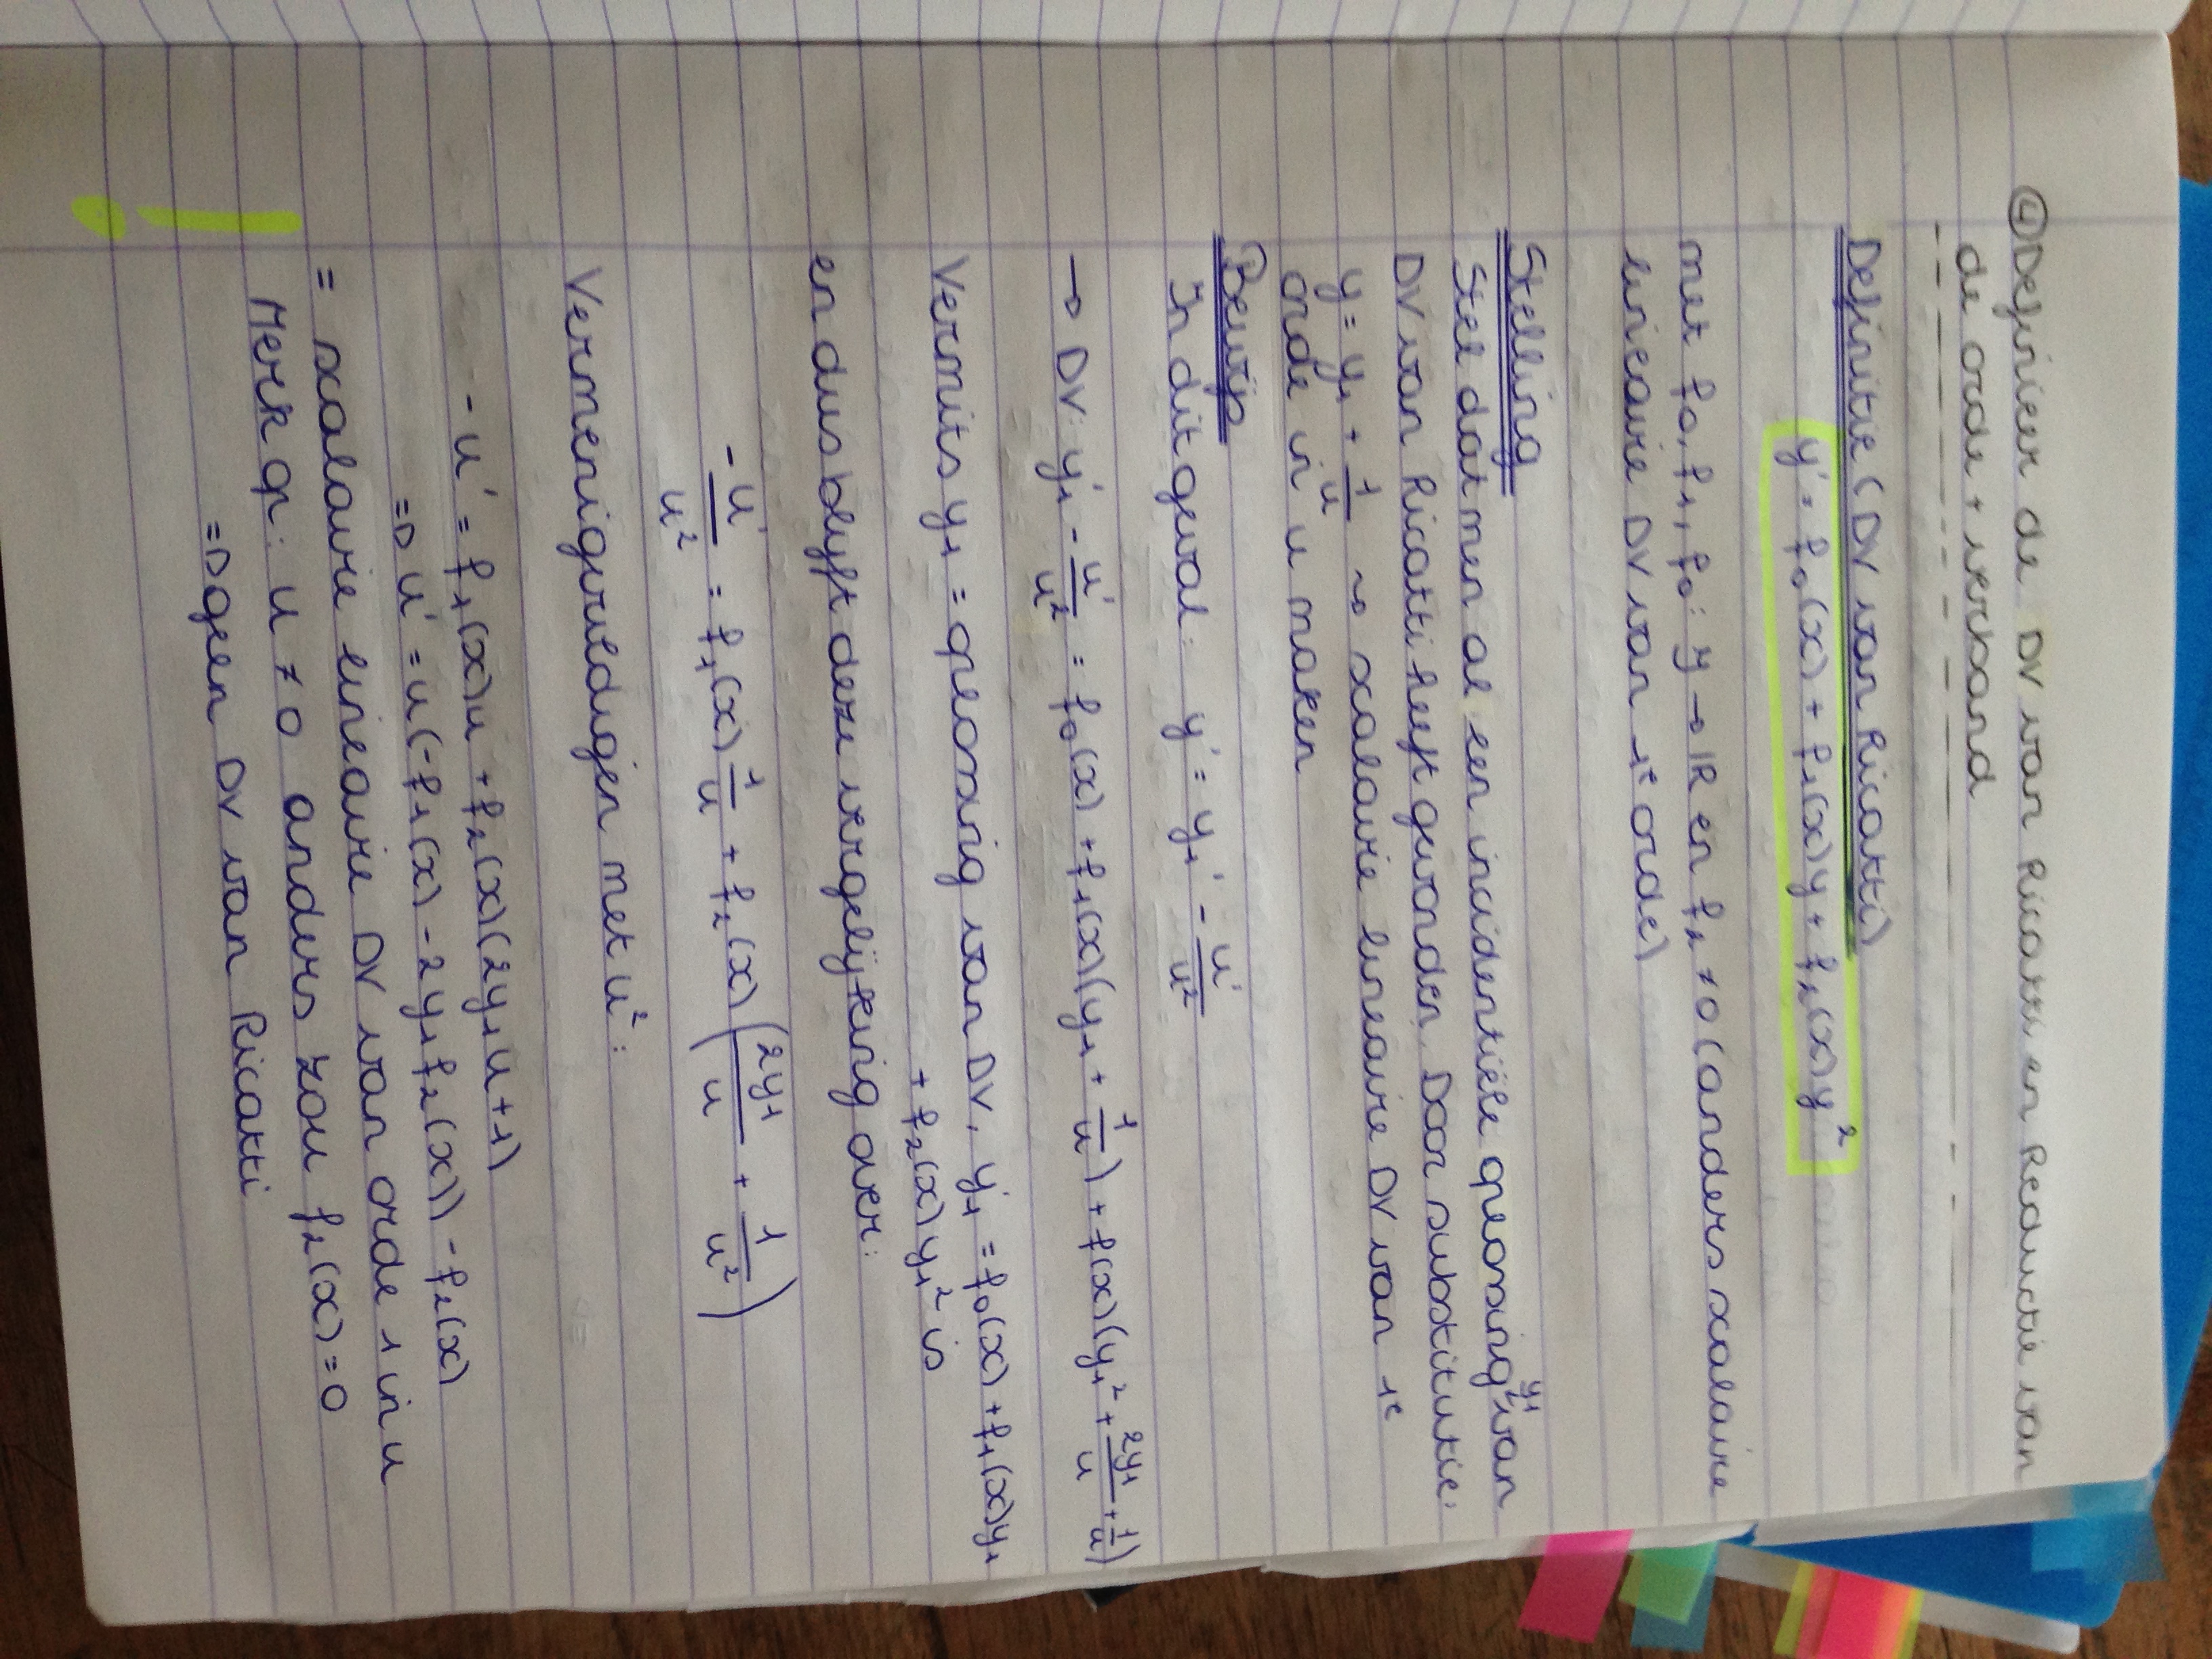 ④ Definieer de DV van Ricatti en Reductie van
de orde + verband
Definitie (DV van Ricatti)
y' = f₀(x) + f₁(x)y + f₂(x)y²
met f₀, f₁, f₀: y → ℝ en f₂ ≠ 0 (anders scalaire
lineaire DV van 1e orde)
Stelling
Stel dat men al een incidentiële oplossing y₁ van
DV van Ricatti heeft gevonden. Door substitutie:
y = y₁ + 1/u ⇝ scalaire lineaire DV van 1e
orde in u maken
Bewijs
In dit geval: y' = y₁' - u'/u²
→ DV: y₁' - u'/u² = f₀(x) + f₁(x)(y₁ + 1/u) + f(x)(y₁² + 2y₁/u + 1/u)
Vermits y₁ = oplossing van DV, y₁' = f₀(x) + f₁(x)y₁
+ f₂(x)y₁² is
en dus blijft deze vergelijking over:
-u'/u² = f₁(x) 1/u + f₂(x) (2y₁/u + 1/u²)
Vermenigvuldigen met u²:
-u' = f₁(x)u + f₂(x)(2y₁u+1)
⇒ u' = u(-f₁(x) - 2y₁f₂(x)) - f₂(x)
= scalaire lineaire DV van orde 1 in u
! Merk op: u ≠ 0 anders zou f₂(x) = 0
⇒ geen DV van Ricatti